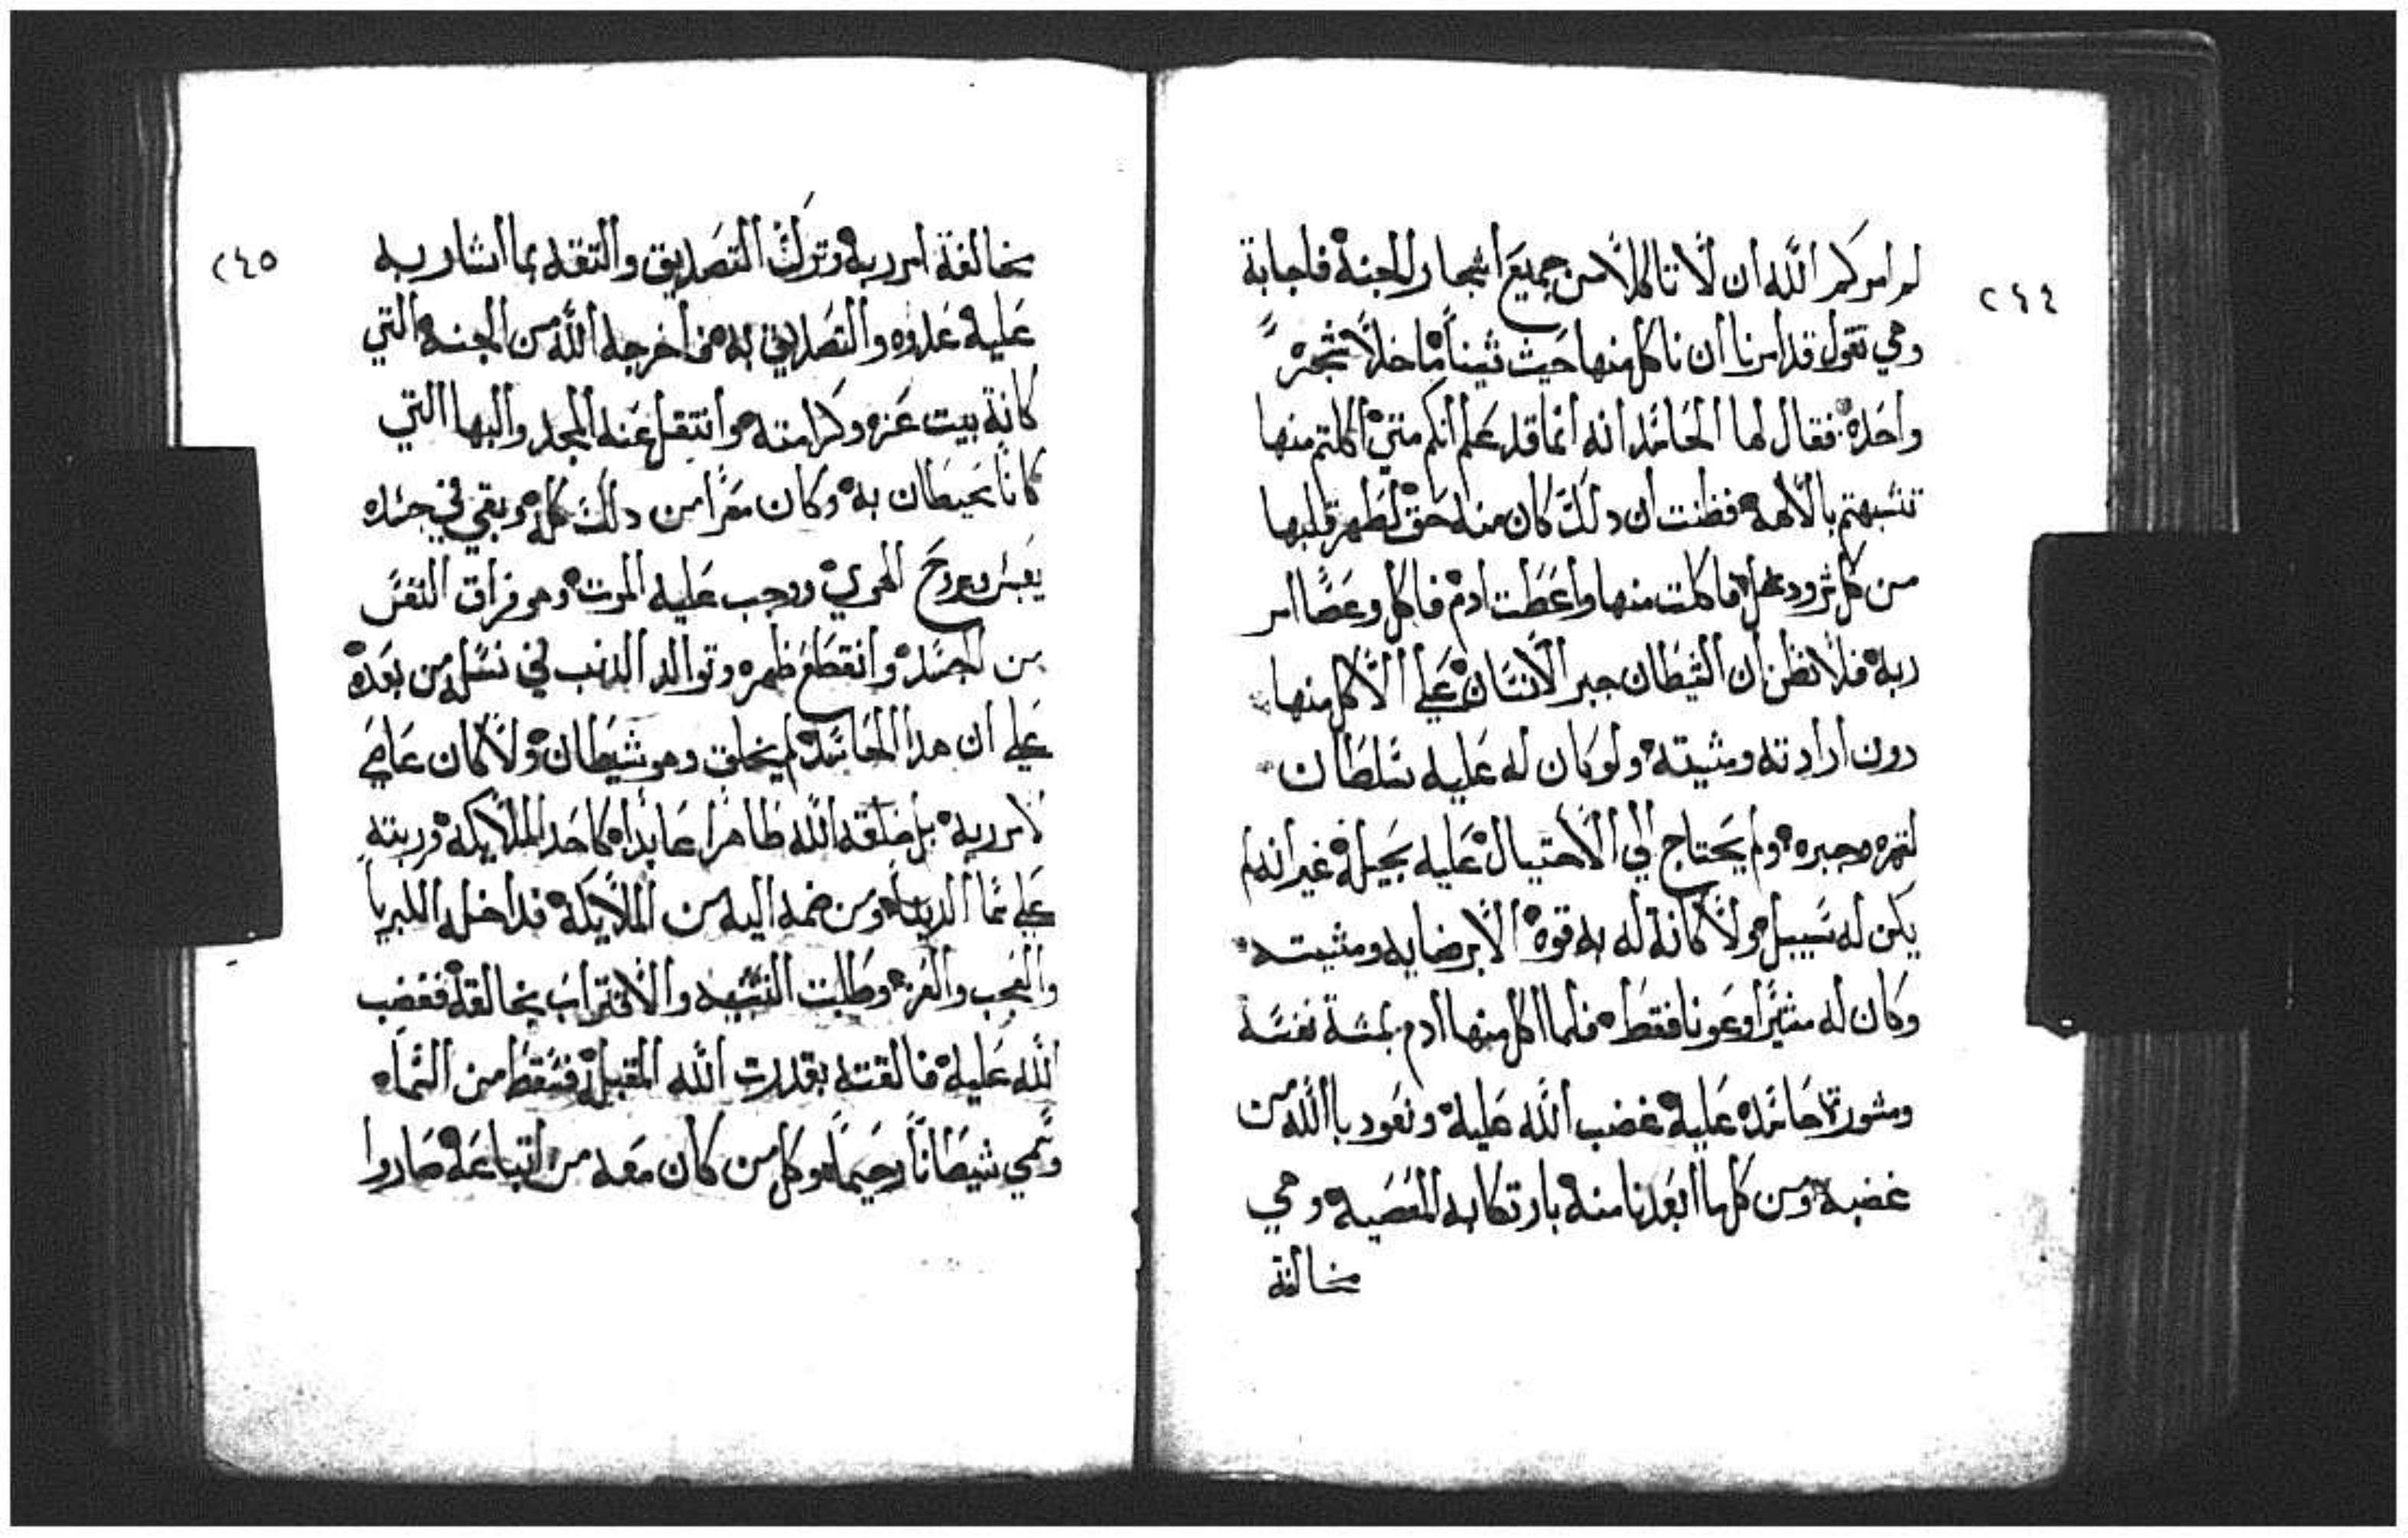 ٢٤٤
لم امركم الله ان لا تاكلا من جميع اشجار الجنة فاجابة
وهي تقول قد امرنا ان ناكل منها حيث شينا ما خلا شجرة
واحدة فقال لها الحاسد انه انما قد علم انكم متي اكلتم منها
تشبهتم بالالهه فظنت ان دلك كان منه حق لطهر قلبها
من كل شر ودغل فاكلت منها واعطت ادم فاكل وعصا امر
ربه فلا نظن ان الشيطان جبر الانسان علي الاكل منها
دون ارادته ومشيته ولو كان له عليه سلطان
لقهره وجبره ولم يحتاج الي الاحتيال عليه بحيله غير انه لم
يكن له سبيل ولا كانة له به قوة الا برضايه ومشيته
وكان له مشيرا وعونا فقط فلما اكل منها ادم بمشة نفسه
ومشورة حاسده عليه غضب الله عليه ونعود باالله من
غضبه ومن كلما ابعدنا منه بارتكابه المعصيه وهي
مخالفة
٢٤٥
مخالفة امر ربه وترك التصديق والتقه بما اشار به
عليه عدوه والتصديق له فمن اخرجه الله من الجنه التي
كانة بيت عزه وكرامته وانتقل عنه المجد والبها التي
كانا يحيطان به وكان معرا من دلك كله وبقي في جسده
يعيش بروح الهوي ووجب عليه الموت وهو فراق النفس
من الجسد وانقطع ظهره وتوالد الدنب في نسله من بعده
علي ان هدا الحاسد لم يخلق وهو شيطان ولا كان عاصي
لامر ربه بل خلقه الله طاهرا عابدا كاحد الملايكه ورتبته
علي سما الدنيا ومن ضمه اليه من الملايكة فداخله الكبريا
والعجب والعزه وطلبت التشبه والاقتراب بخالقه فغضب
الله عليه خالقته بقدرت الله المقبله فسقط من السماء
وسمي شيطانا رجيما وكل من كان معه من اتباعه صاروا